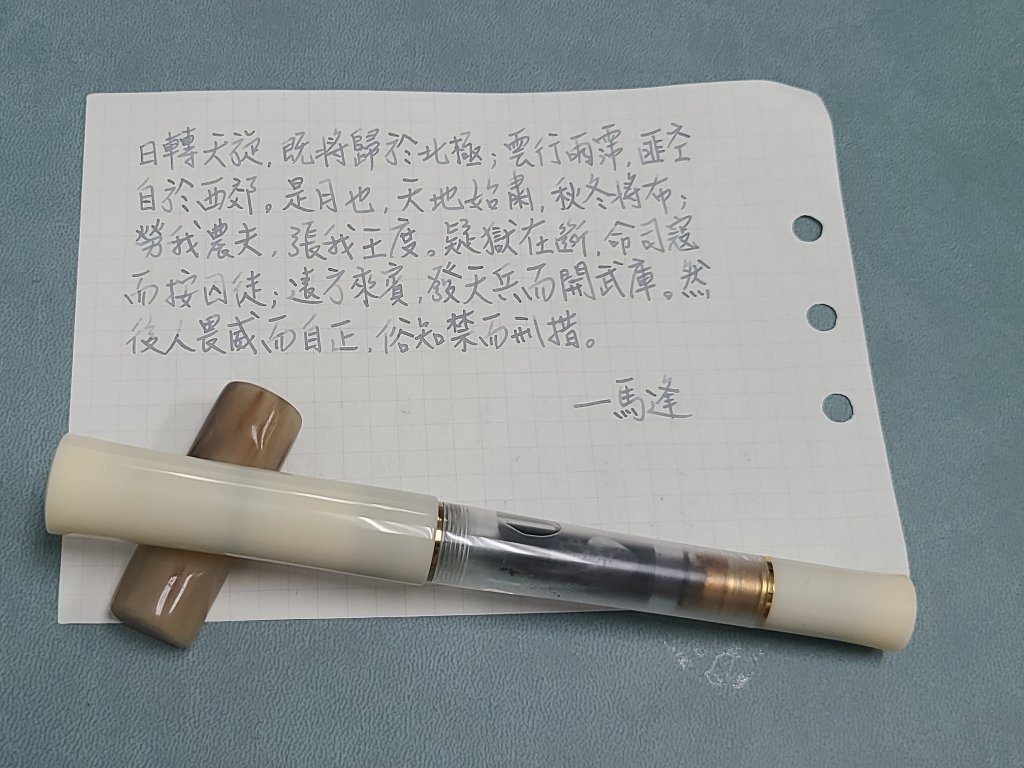 日轉天旋,既將歸於北極;雲行雨霈,匪空
自於西郊。是月也,天地始肅,秋冬將布;
勞我農夫,張我王度。疑獄在斷,命司寇
而按囚徒;遠方來賓,發天兵而開武庫。然
後人畏威而自正,俗知禁而刑措。
一馬逢